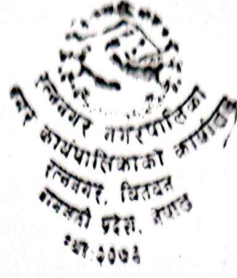 रत्ननगर नगरपालिका
नगर कार्यपालिकाको कार्यालय
रत्ननगर, चितवन
बागमती प्रदेश, नेपाल
स्था. २०७३